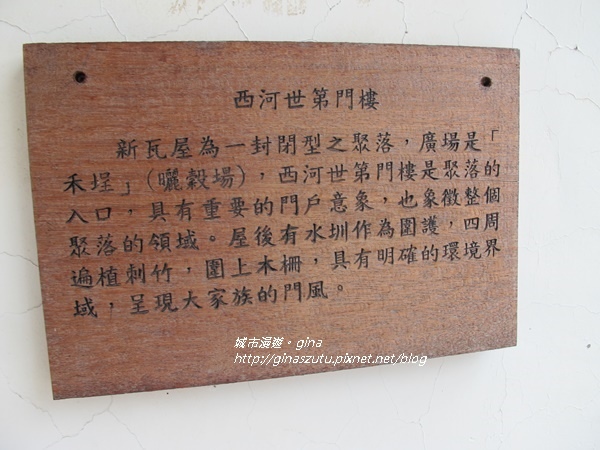 西河世第門樓
新瓦屋為一封閉型之聚落，廣場是「
禾埕」（曬穀場），西河世第門樓是聚落的
入口，具有重要的門戶意象，也象徵整個
聚落的領域。屋後有水圳作為圍護，四周
遍植刺竹，圍上木柵，具有明確的環境界
域，呈現大家族的門風。
城市漫遊。gina
http://ginaszutu.pixnet.net/blog